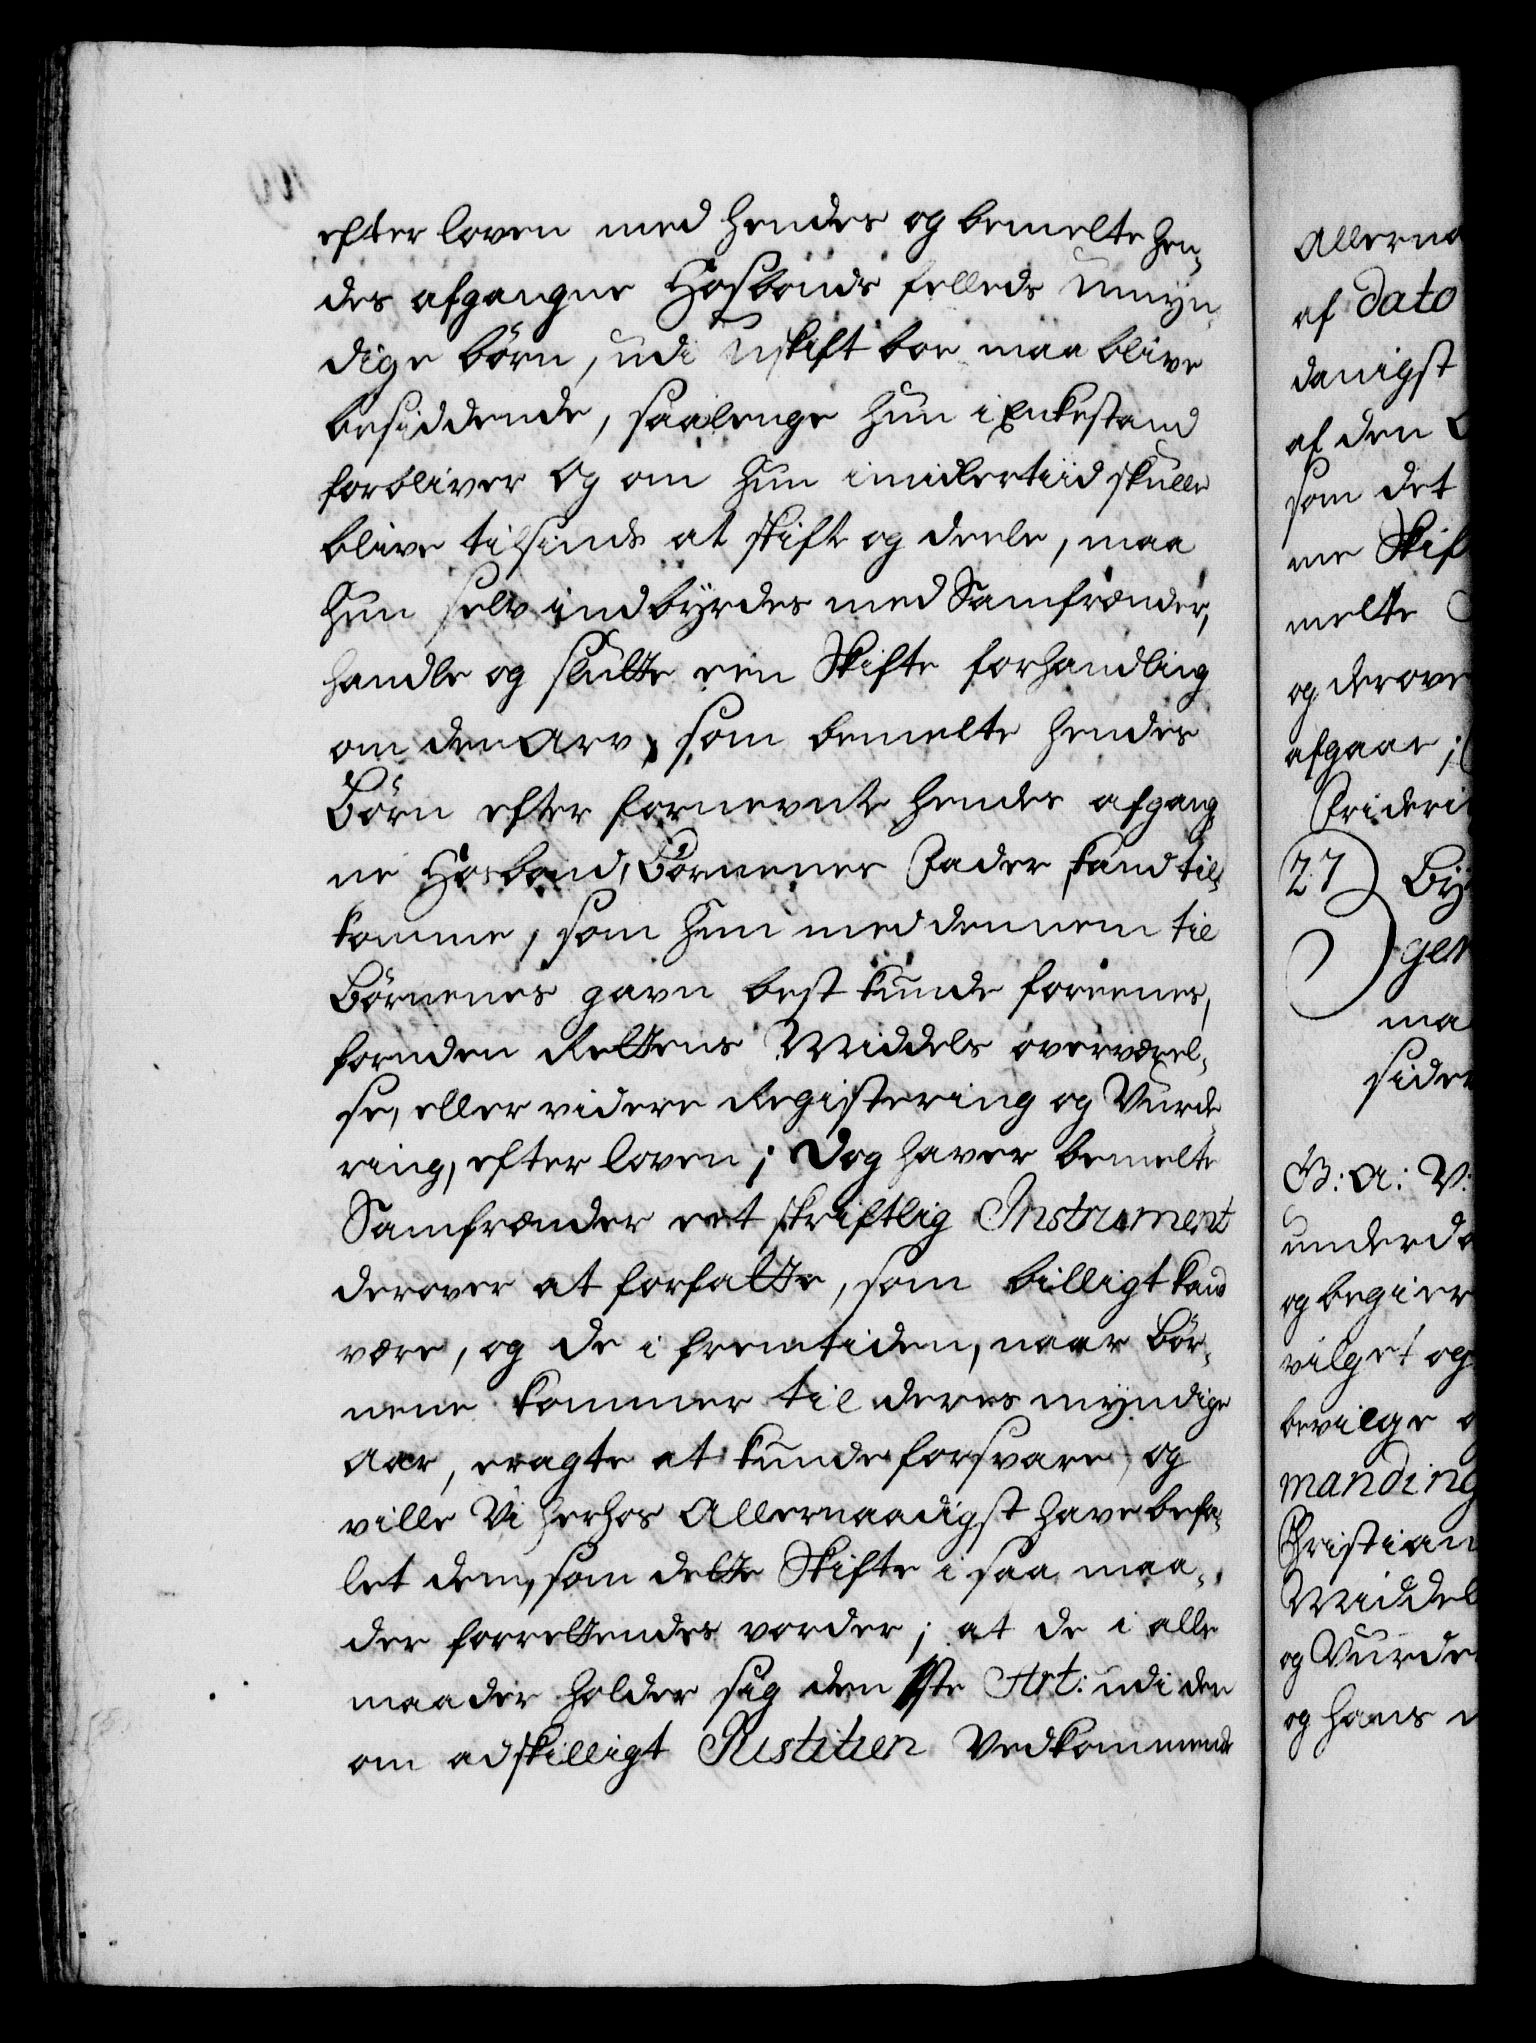 efter loven med hendes og bemelte hen¬
des afgangne Hosbonds felleds umyn¬
dige börn, udi Uskift boe maa blive
besiddende, saalenge hun i Enkestand
forbliver og om hun imidlertiid skulle
blive tilsinds at skifte og deele, maa
hun selv indbyrdes med Samfrænder,
handle og slutte een Skifte forhandling
om den Arv, som bemelte hendes
Börn efter fornevnte hendes afgang¬
ne Hosbond, Börnenes Fader kand til¬
komme, som hun med dennem til
Börnenes gavn best kunde foreenes,
foruden Rettens Middels overværel¬
se, eller videre Registering og Vurde¬
ring, efter loven; Dog haver bemelte
Samfrænder eet skriftlig Instrument
derover at forfatte, som billigt kand
være, og de i fremtiden, naar Bör¬
nene kommer til deres myndige
Aar, eragte at kunde forsvare, og
ville Vi herhos Allernaadigst have befa¬
let dem, som dette Skifte i saa maa¬
der forrettendes vorder; at de i alle
maader holder sig den 1ste Art: udi den
om adskilligt Justitien Vedkommende
Allerna
af Dato
danigst
af den
som det
me Skif
melte
og derove
afgaae;
Frideri
27
By
gen
ma
sider
G: A: V:
underda
og begier
vilget og
bevilge
manding
Christian
Middel
og Vurde
og hans